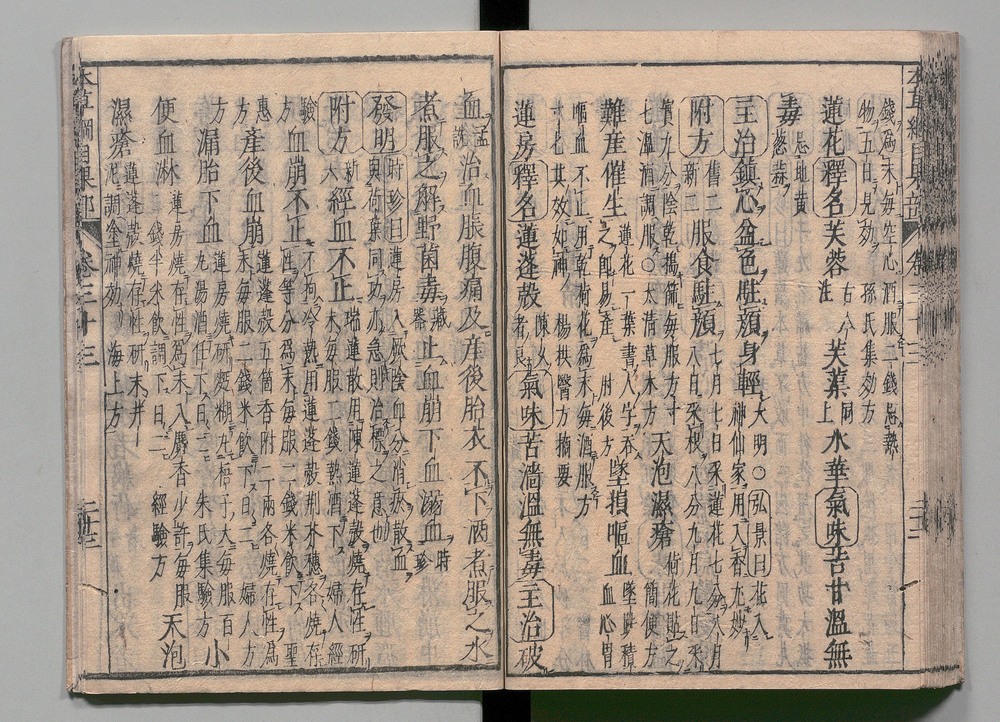 錢爲末毎空心酒服二錢忌熱
物五日見効 孫氏集効方
蓮花釋名芙蓉 芙蕖 水華氣味苦甘溫無
毒忌地黃葱蒜
主治鎮心益色駐顏身輕大明○弘景曰花入
神仙家用入香尤妙
附方舊二新二服食駐顏七月七日采蓮花七分八月
八日采根八分九月九日采
實九分陰乾搗篩毎服方寸
七溫酒調服○太清草木方 天泡濕瘡荷花貼之
簡便方
難産催生蓮花一葉書人字吞
之卽易産 肘後方 墜損嘔血墜跌積
血心胃
嘔血不止用乾荷花爲末毎酒服方
寸七其效如神 楊拱醫方摘要
蓮房釋名蓮蓬殼陳久者良氣味苦濇溫無毒主治破
血孟詵治血脹腹痛及産後胎衣不下酒煮服之水
煮服之解野菌毒藏器止血崩下血溺血時珍
發明時珍曰蓮房入厥陰血分消瘀散血
與荷葉同功亦急則治標之意也
附方新六經血不止瑞蓮散用陳蓮蓬殼燒存性研
末毎服二錢熱酒下 婦人經
驗方血崩不止不拘冷熱用蓮蓬殼荆芥穗各燒存
性等分爲末毎服二錢米飲下 聖
惠方産後血崩蓮蓬殼五箇香附二兩各燒存性爲
末毎服二錢米飲下日二 婦人
方漏胎下血蓮房燒研麪糊丸梧子大毎服百
丸湯酒任下日二 朱氏集驗方 小
便血淋蓮房燒存性爲末入麝香少許毎服二
錢半米飲調下日二 經驗方 天泡
濕瘡蓮蓬殼燒存性研末井
泥調塗神効 海上方
本草綱目果部 卷三十三